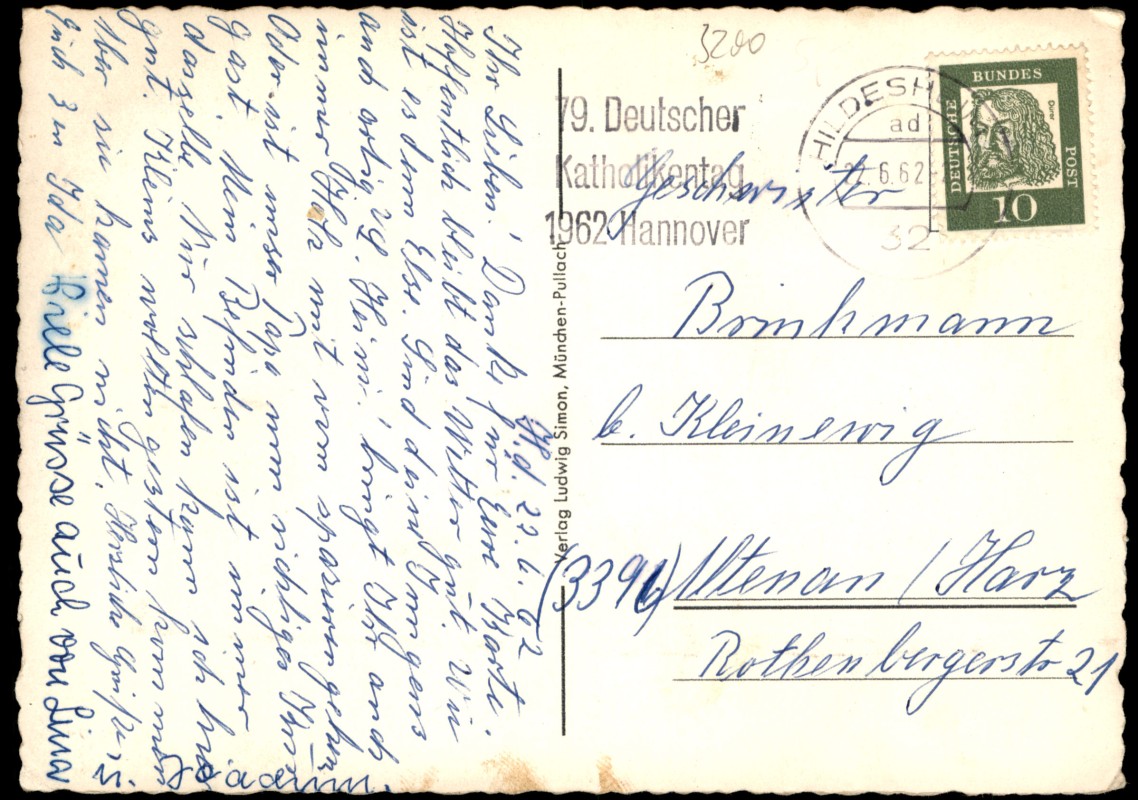 3200
79. Deutscher
Katholikentag
1962 Hannover
HILDESHEIM
ad
6.62
32
DEUTSCHE
BUNDES
POST
Dürer
10
Geschwister
Brinkmann
b. Kleinewig
(3396) Altenau / Harz
Rothenbergerstr 21
Verlag Ludwig Simon, München-Pullach
Hd. 27.6.62
Ihr Lieben! Dank für Eure Karte.
Hoffentlich bleibt das Wetter gut. Wie
ist es denn Else. Sind deine Jungens
auch artig, vg. Heini! bringt Ihr auch
immer Ilse mit vom spazierengehen
Oder ist unser Papa nun richtiges
Gast. Mein Befinden ist immer
dasselbe. Nur schlafen kann ich
gut. Kleins wollten gestern kommen
Aber sie kamen nicht. Herzliche Grüsse
Euch 3 en Ida Viele Grüsse auch von Lina